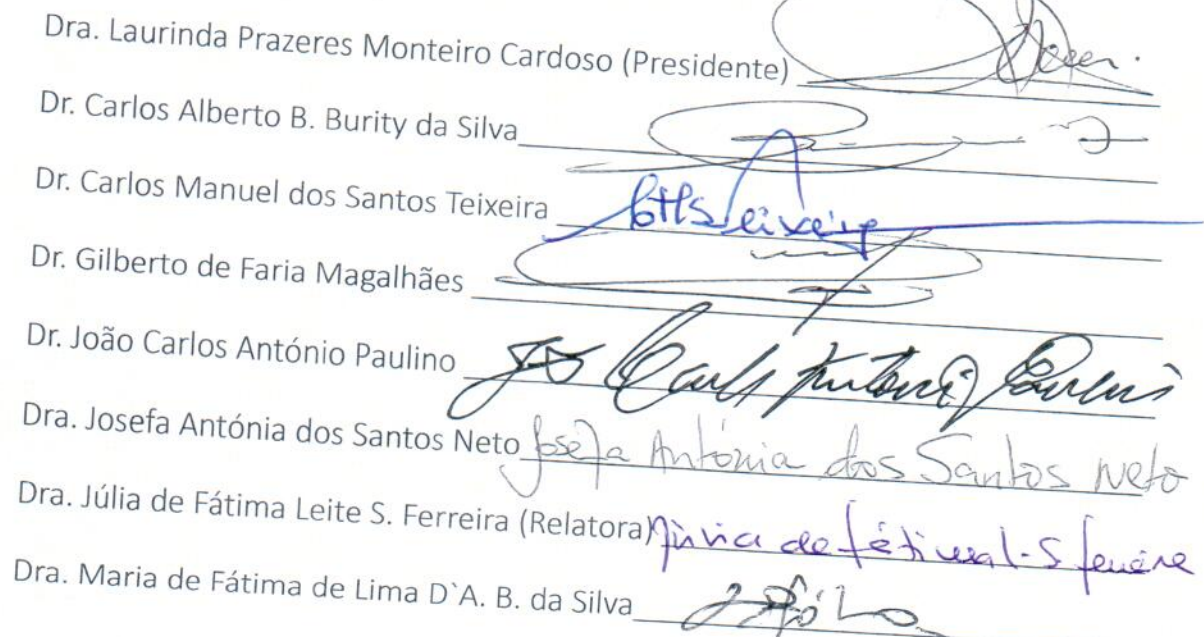 Dra. Laurinda Prazeres Monteiro Cardoso (Presidente)
Dr. Carlos Alberto B. Burity da Silva
Dr. Carlos Manuel dos Santos Teixeira
Dr. Gilberto de Faria Magalhães
Dr. João Carlos António Paulino
Dra. Josefa Antónia dos Santos Neto Josefa Antónia dos Santos Neto
Dra. Júlia de Fátima Leite S. Ferreira (Relatora)
Dra. Maria de Fátima de Lima D`A. B. da Silva